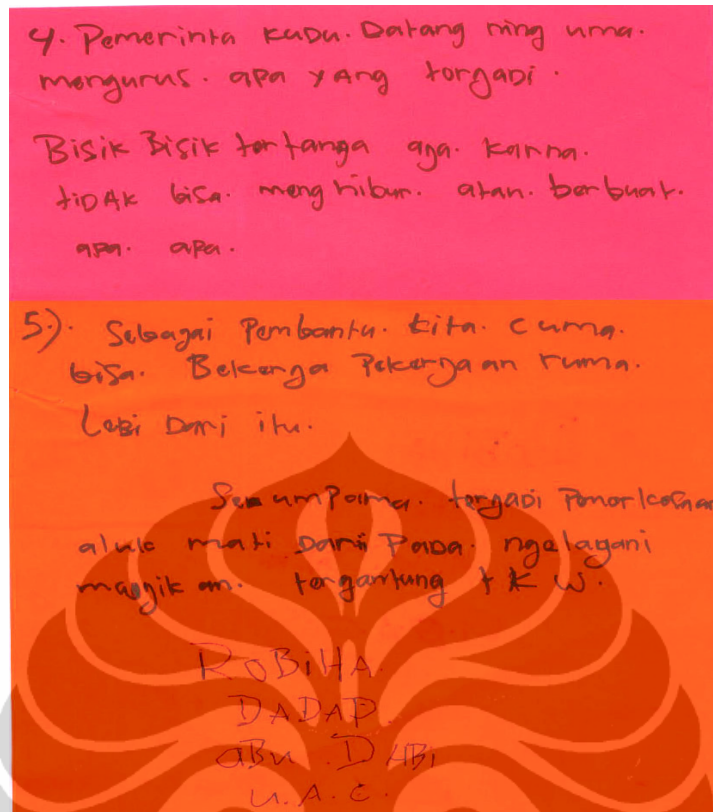 4. Pemerinta kudu. Datang ning uma.
mengurus. apa yang torgadi.
Bisik Bisik tortanga aga. karna.
tiDAK bisa. menghibur. atau. berbuat.
apa. apa.
5). Sebagai Pembantu. kita. cuma.
bisa. Bekerga Pekergaan ruma.
Lebi Dari itu.
Seumpama. tergadi Pemorkosaan
aluk mati Dari Pada. ngelagani
magikan. tergantung t k w.
ROBiHA.
DADAP.
aBu. DHBi
U.A.E.